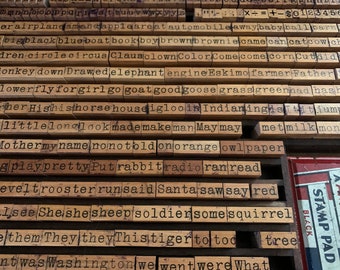 x = + - ¢ 1 2 3 4 5
airplane and apple are at automobile away baby ball
black blue boat boy brown brownie came can cat cow
children circles Claus clown Color come corn Cut
donkey down Draw ed elephant engine Eskimo farmer Father
flower fly for girl go goat good goose grass green had has
her His his horse house igloo in Indian ing
little long look made make man May may met milk
Mother my name no not old on orange owl paper
play pretty Put rabbit radio ran read
rooster run said Santa saw say red
See She she sheep soldier some squirrel
them They they This tiger to too tree
Washington we went were What
BLACK
STAMP PAD